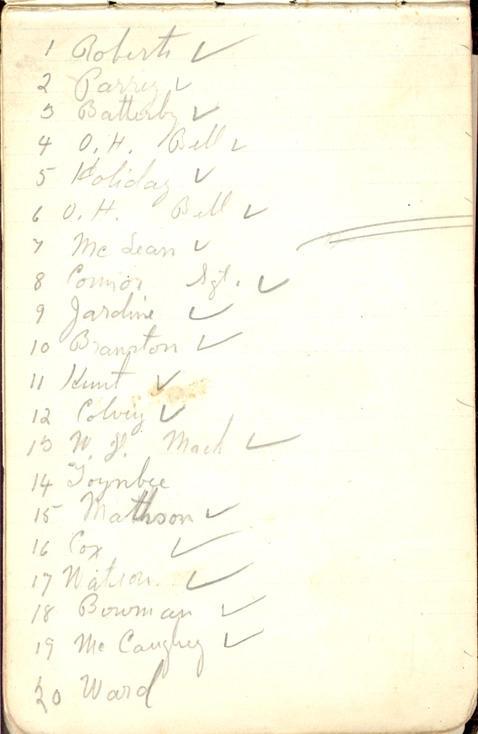 1 Roberts ✓
2 Parry ✓
3 Batterby ✓
4 O. H. Bell ✓
5 Holiday ✓
6 O. H. Bell ✓
7 Mc Lean ✓
8 Connor Sgt. ✓
9 Jardine ✓
10 Brampton ✓
11 Hunt ✓
12 Colvey ✓
13 W. J. Mack ✓
14 Toynbee
15 Mathson ✓
16 Cox ✓
17 Watson. ✓
18 Bowman ✓
19 Mc Caughey ✓
20 Ward